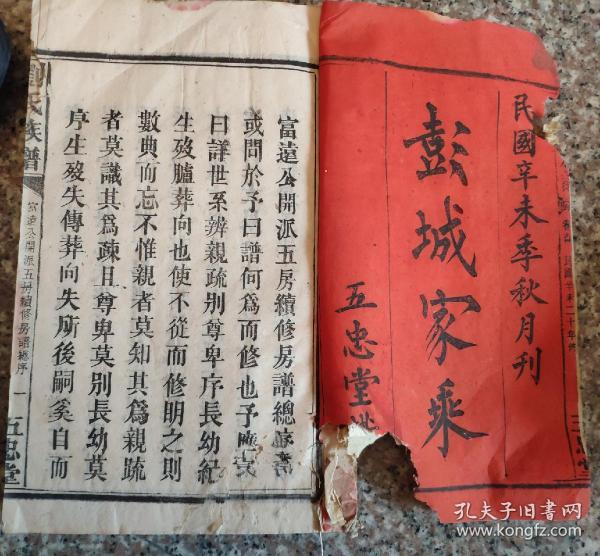 民國辛未季秋月刊
彭城家乘
五忠堂
富遠公開派五房續修房譜總序
或問於予曰譜何為而修也予應之
曰詳世系辨親疏別尊卑序長幼紀
生歿臚葬向也使不從而修明之則
數典而忘不惟親者莫知其為親疏
者莫識其為疎且尊卑莫別長幼莫
序生歿失傳葬向失所後嗣奚自而
氏族譜
富遠公開派五房續修房譜總序
一
五忠堂
孔夫子旧书网
www.kongfz.com